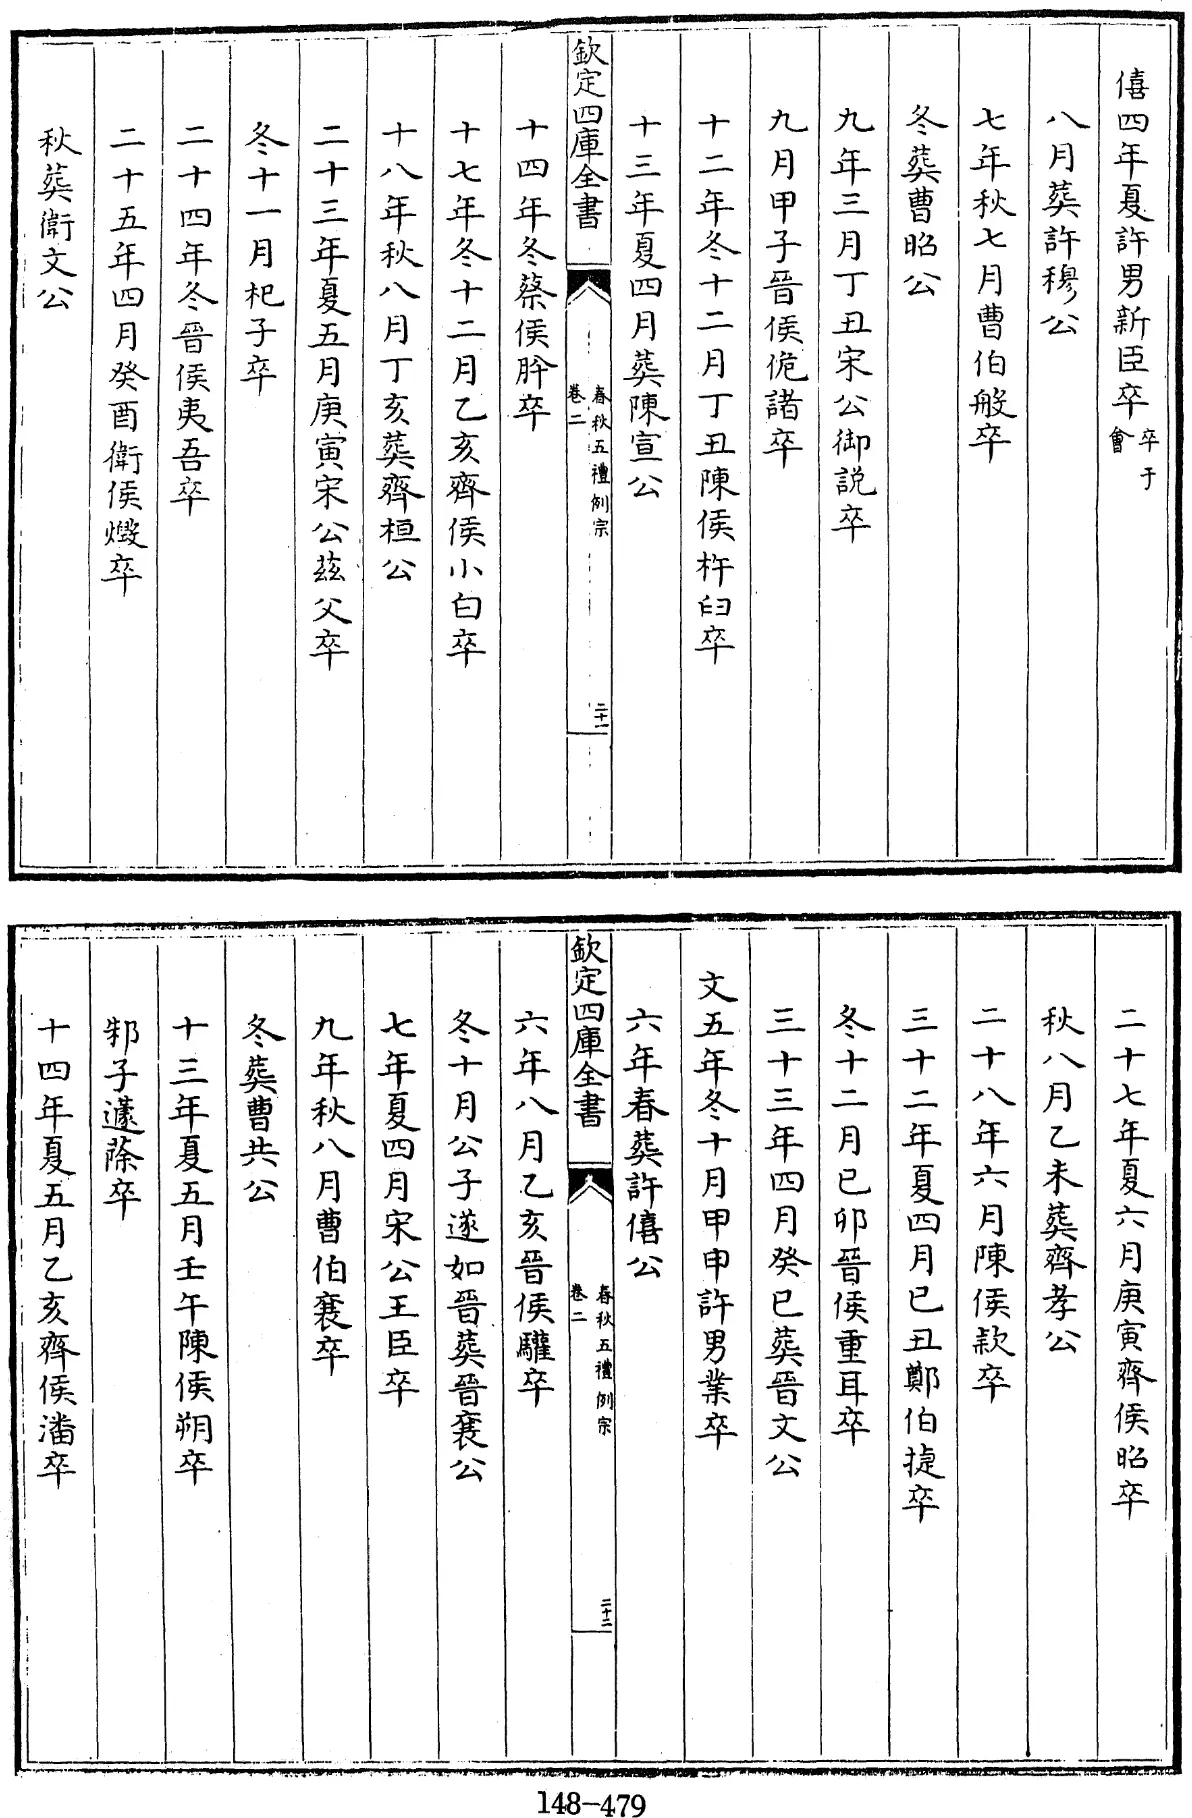 僖四年夏許男新臣卒卒于會
八月葬許穆公
七年秋七月曹伯般卒
冬葬曹昭公
九年三月丁丑宋公御説卒
九月甲子晉侯佹諸卒
十二年冬十二月丁丑陳侯杵臼卒
十三年夏四月葬陳宣公
欽定四庫全書
春秋五禮例宗
卷二
二十一
十四年冬蔡侯肸卒
十七年冬十二月乙亥齊侯小白卒
十八年秋八月丁亥葬齊桓公
二十三年夏五月庚寅宋公茲父卒
冬十一月杞子卒
二十四年冬晉侯夷吾卒
二十五年四月癸酉衛侯燬卒
秋葬衛文公
二十七年夏六月庚寅齊侯昭卒
秋八月乙未葬齊孝公
二十八年六月陳侯款卒
三十二年夏四月已丑鄭伯捷卒
冬十二月已卯晉侯重耳卒
三十三年四月癸巳葬晉文公
文五年冬十月甲申許男業卒
六年春葬許僖公
欽定四庫全書
春秋五禮例宗
卷二
二十二
六年八月乙亥晉侯驩卒
冬十月公子遂如晉葬晉襄公
七年夏四月宋公王臣卒
九年秋八月曹伯襄卒
冬葬曹共公
十三年夏五月壬午陳侯朔卒
邾子蘧蒢卒
十四年夏五月乙亥齊侯潘卒
148-479